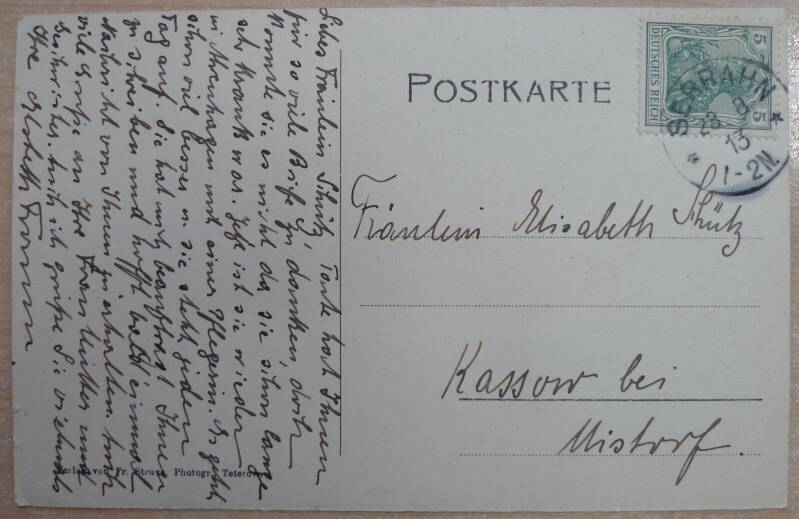 Liebes Fräulein Schütz, Tante hat Ihnen
für so viele Briefe zu danken, doch
konnte sie es nicht da sie schon lange
sehr krank war. Jetzt ist sie wieder
in und einer Pflegerin. Es geht
schon viel besser u. sie steht jeden
Tag auf. Sie hat mich beauftragt Ihnen
zu schreiben und hofft bald einmal
Nachricht von Ihnen zu erhalten. Auch
viele Grüße an Ihre Frau Mutter und
Geschwister. Auch ich grüße Sie vielmals
Ihre Elsbeth
POSTKARTE
5 DEUTSCHES REICH 5
SERRAHN
23 8
13
1-2N.
Fräulein Elisabeth Schütz
Kassow bei
Mistorf.
Verlag von Fr. Straus, Photogr. Teterow